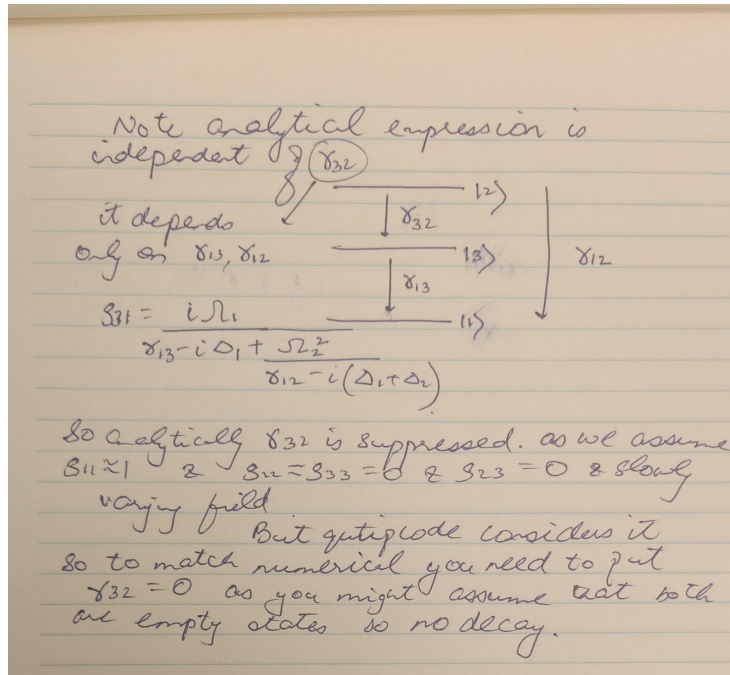 Note analytical expression is
independent of γ32
|2>
it depends
γ32
only on γ13, γ12
|3>
γ12
γ13
ρ31 = iΩ1
|1>
γ13 - iΔ1 + Ω2²
γ12 - i(Δ1+Δ2)
So analytically γ32 is suppressed. as we assume
ρ11≈1 & ρ22≈ρ33=0 & ρ23=0 & slowly
varying field
But qutip code considers it
So to match numerical you need to put
γ32=0 as you might assume that both
are empty states so no decay.